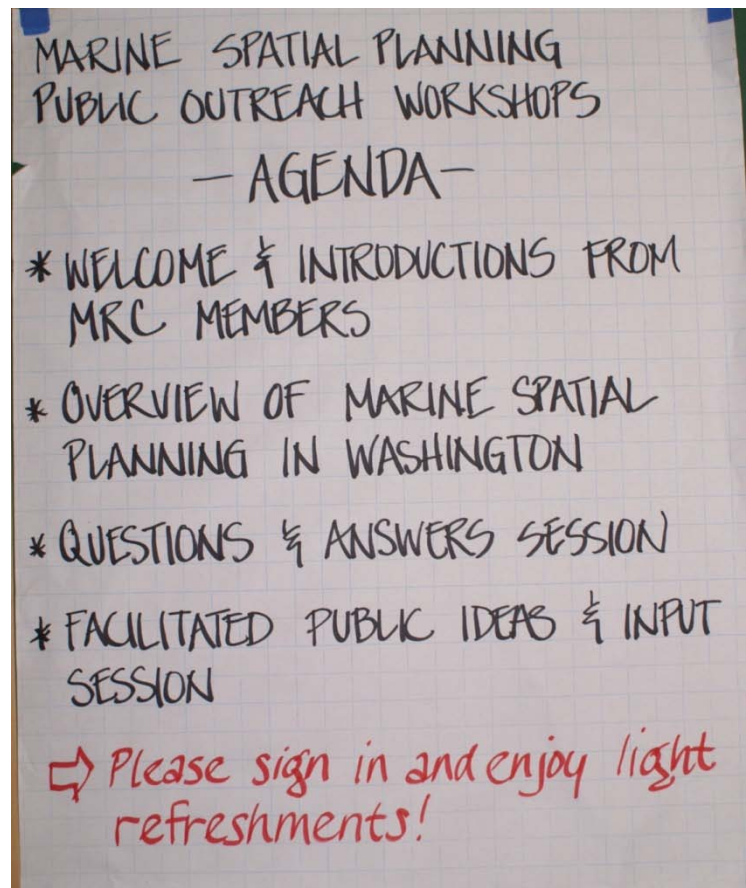 MARINE SPATIAL PLANNING
PUBLIC OUTREACH WORKSHOPS
- AGENDA -
* WELCOME & INTRODUCTIONS FROM
MRC MEMBERS
* OVERVIEW OF MARINE SPATIAL
PLANNING IN WASHINGTON
* QUESTIONS & ANSWERS SESSION
* FACILITATED PUBLIC IDEAS & INPUT
SESSION
⇨ Please sign in and enjoy light
refreshments!